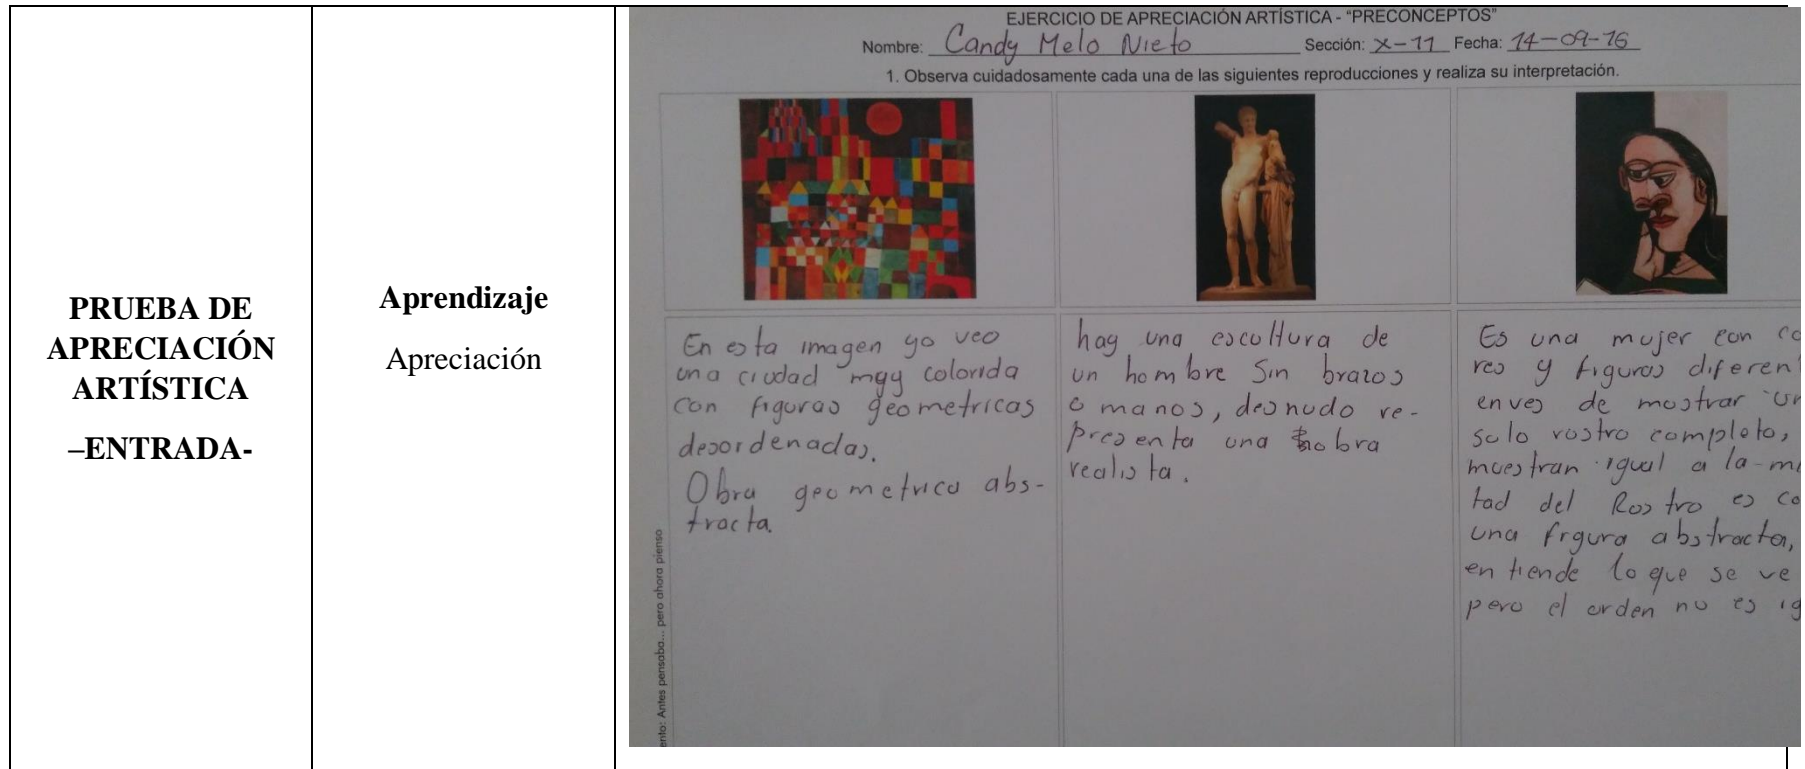 PRUEBA DE
APRECIACIÓN
ARTÍSTICA
–ENTRADA-
Aprendizaje
Apreciación
EJERCICIO DE APRECIACIÓN ARTÍSTICA - "PRECONCEPTOS"
Nombre: Candy Melo Nieto Sección: X-11 Fecha: 14-09-16
1. Observa cuidadosamente cada una de las siguientes reproducciones y realiza su interpretación.
En esta imagen yo veo
una ciudad muy colorida
con figuras geometricas
desordenadas.
Obra geometrica abs-
tracta.
hay una escoltura de
un hombre Sin brazos
o manos, desnudo re-
presenta una obra
realista.
Es una mujer con co
res y figuras diferent
enves de mostrar un
solo rostro completo,
muestran igual a la mi
tad del Rostro es co
una figura abstracta,
entiende lo que se ve
pero el orden no es ig
ento: Antes pensaba... pero ahora pienso